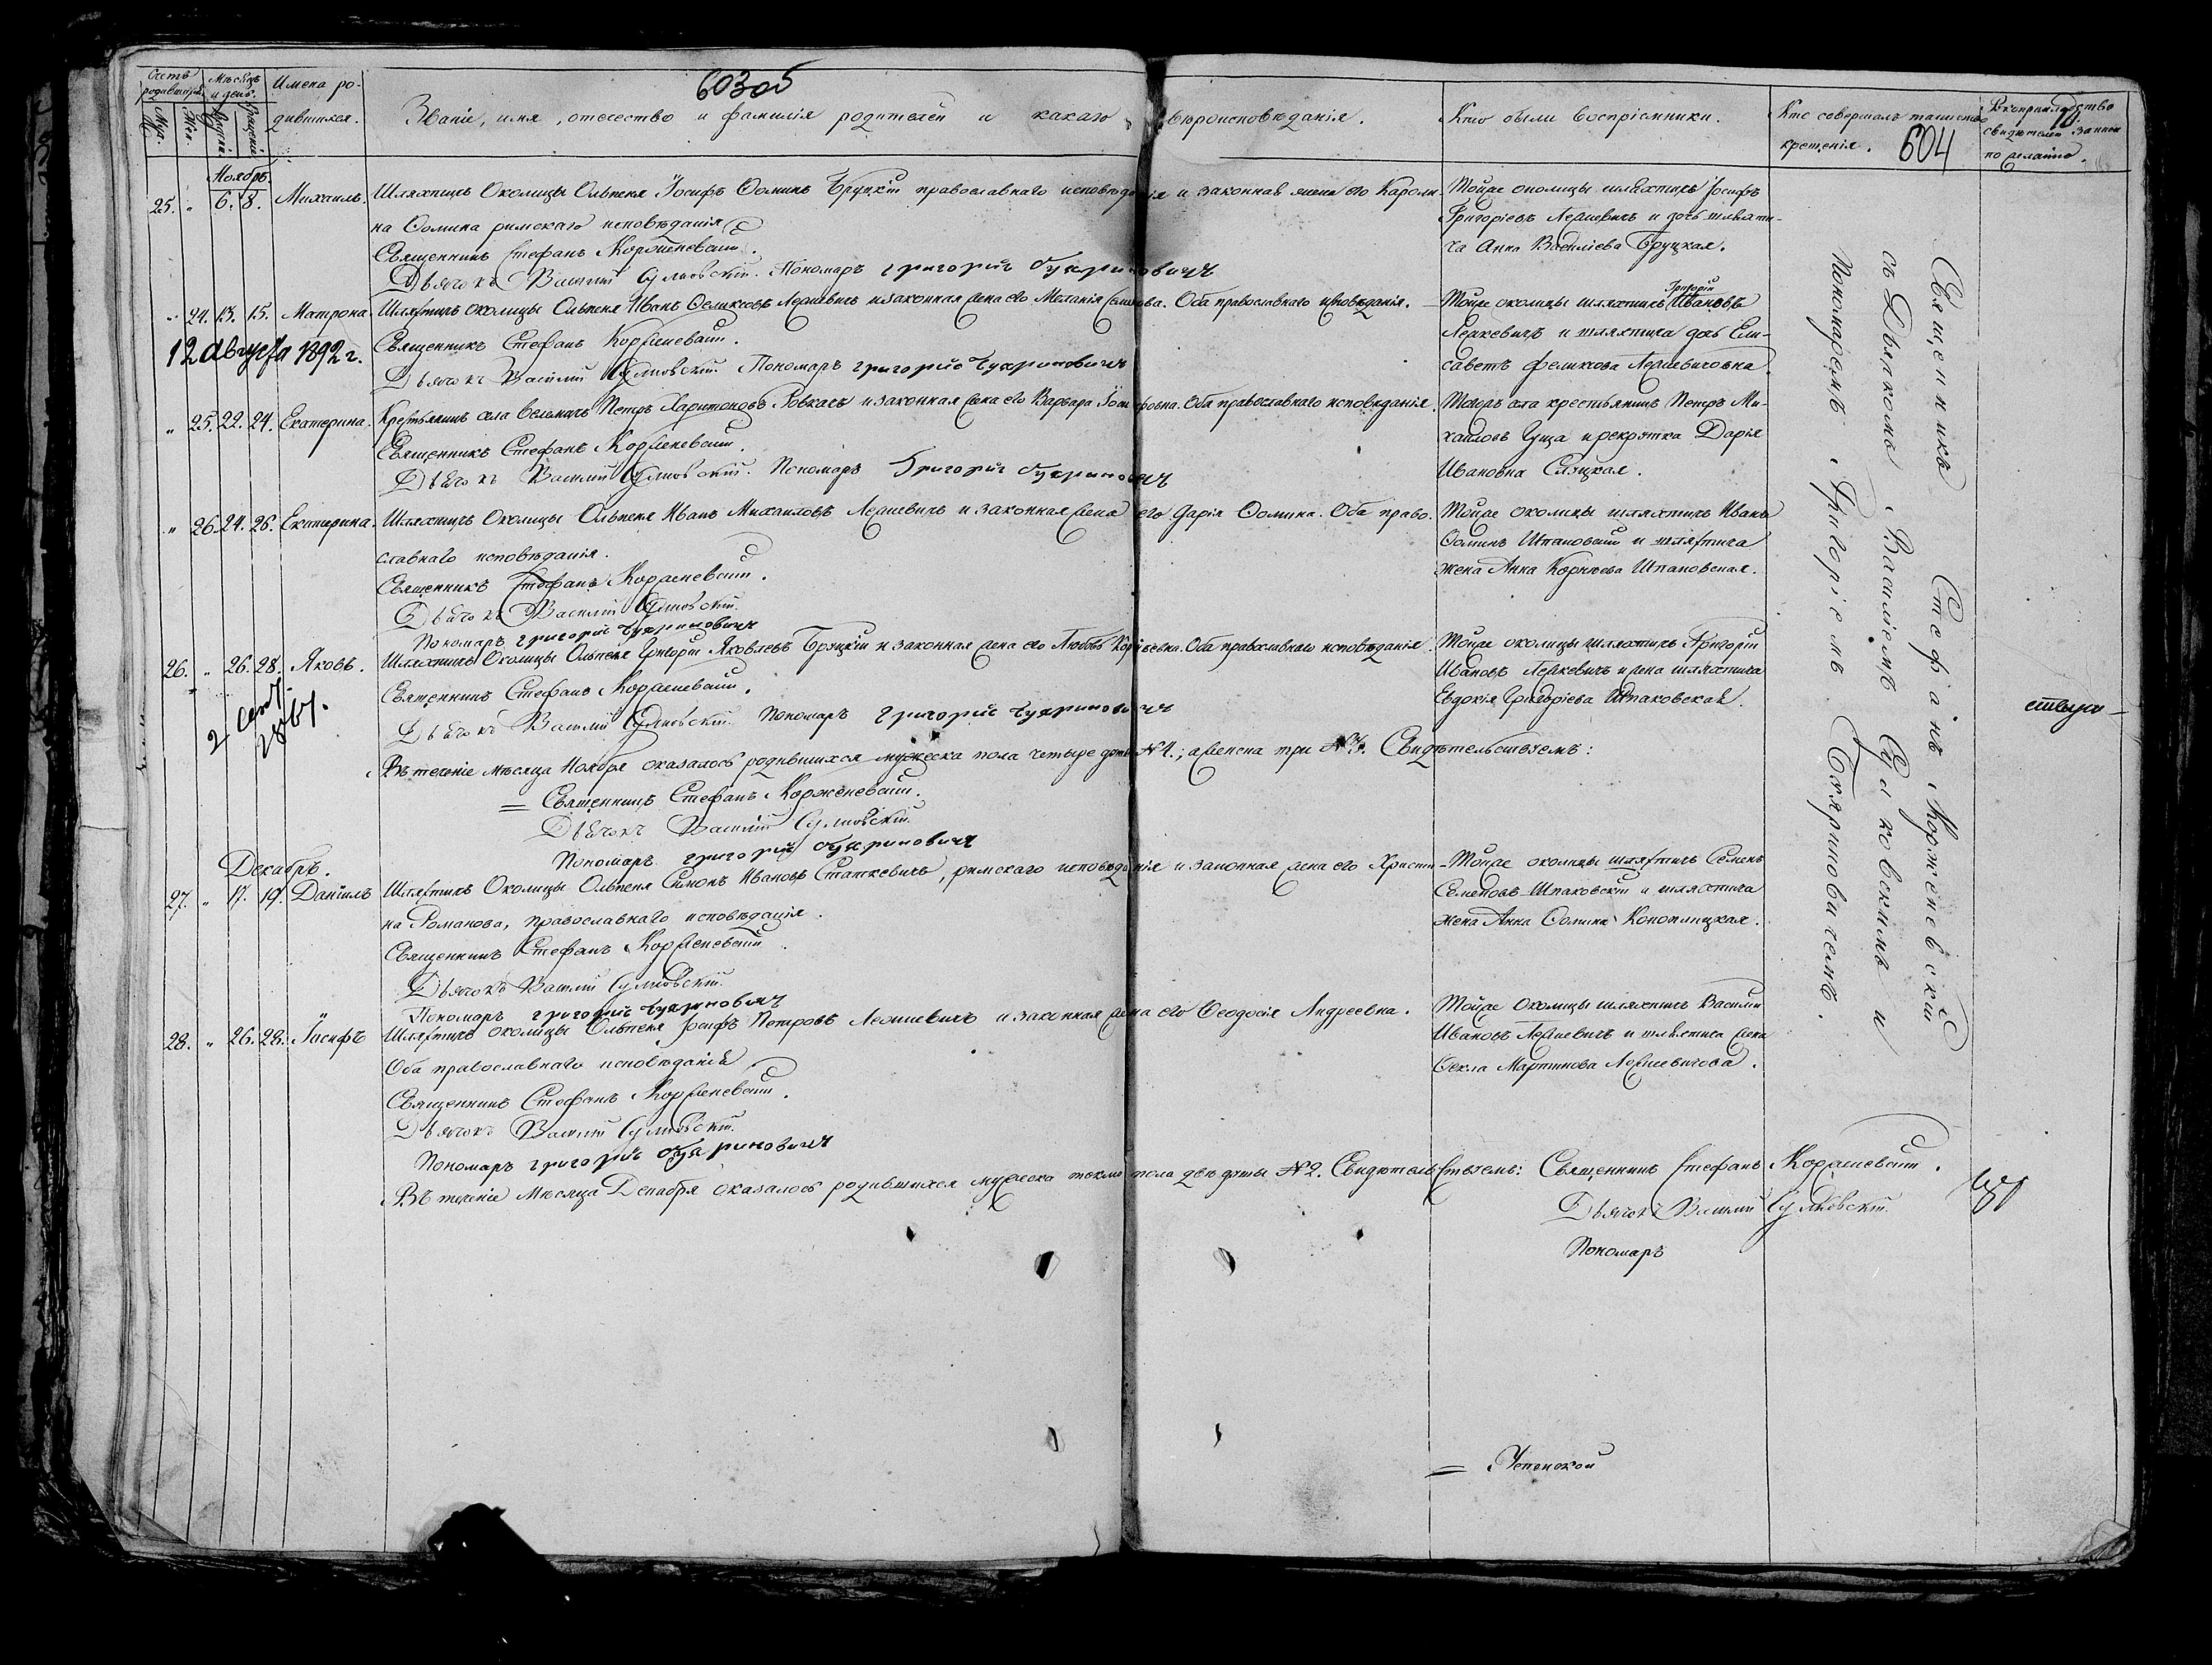 603об
604
Счетъ родившихся.
Муж.
Жен.
Мѣсяцъ и день.
Рожденія.
Крещенія.
Имена родившихся.
Званіе, имя, отечество и фамилія родителей и какаго вѣроисповѣданія.
Кто были воспріемники.
Кто совершалъ таинство крещенія.
Рукоприкладство свидѣтелей записи по желанію.
Ноябрь.
25. „ 6. 8. Михаилъ.
Шляхтичъ Околицы Ольпеня Іосифъ Ѳоминъ Бруцкій православнаго исповѣданія и законная жена его Кароли-
на Ѳомина римскаго исповѣданія
Священникъ Стефанъ Корженевскій.
Дьячокъ Василій Сулковскій. Пономарь Григорій
Тойже околицы шляхтичъ Іосифъ
Григоріевъ Лешкевичъ и дочь шляхти-
ча Анна Василіева Бруцкая.
„ 24. 13. 15. Матрона
Шляхтичъ околицы Ольпеня Иванъ Феликсовъ Лешкевичъ и законная жена его Меланія Оба православнаго исповѣданія.
Священникъ Стефанъ Корженевскій.
Дьячокъ Василій Сулковскій Пономарь Григорій
12 Августа 1892 г.
Тойже околицы шляхтичъ Григорій Ивановъ
и шляхтича дочь Ели-
саветъ Феликсова
„ 25. 22. 24. Екатерина.
Крестьянинъ села Велемичъ Петръ Харитоновъ Ковкачъ и законная жена его Варвара Іосифовна. Оба православнаго исповѣданія.
Священникъ Стефанъ Корженевскій.
Дьячокъ Василій Сулковскій. Пономарь Григорій
Тогожъ села крестьянинъ Петръ Ми-
хаиловъ Гуща и рекрутка Дарія
Ивановна Слуцкая.
„ 26. 24. 26. Екатерина.
Шляхтичъ Околицы Ольпеня Иванъ Михаиловъ Лешкевичъ и законная жена его Дарія Ѳомина. Оба право-
славнаго исповѣданія.
Священникъ Стефанъ Корженевскій.
Дьячокъ Василій Сулковскій.
Пономарь Григорій
Тойже околицы шляхтичъ Иванъ
Ѳоминъ Шпаковскій и шляхтича
жена Анна Корнѣева Шпаковская.
26. „ 26. 28. Яковъ.
Шляхтичъ Околицы Ольпеня Григорій Яковлевъ Бруцкій и законная жена его Любовь Оба православнаго исповѣданія.
Священникъ Стефанъ Корженевскій.
Дьячокъ Василій Сулковскій. Пономарь Григорій
Тойже околицы шляхтичъ Григорій
Ивановъ и жена шляхтича
Евдокія Григоріева Шпаковская.
Въ теченіе мѣсяца Ноября оказалось родившихся мужеска пола четыре № 4.; а женска три № 3. Свидѣтельствуемъ:
Священникъ Стефанъ Корженевскій.
Дьячокъ Василій Сулковскій.
Пономарь Григорій
Декабрь.
27. „ 17. 19. Даніилъ
Шляхтичъ Околицы Ольпеня Симонъ Ивановъ Статкевичъ, римскаго исповѣданія и законная жена его Христи-
на Романова, православнаго исповѣданія.
Священникъ Стефанъ Корженевскій.
Дьячокъ Василій Сулковскій.
Пономарь Григорій
Тойже околицы шляхтичъ Семенъ
Семеновъ Шпаковскій и шляхтича
жена Анна Ѳомина Коноплицкая.
28. „ 26. 28. Іосифъ
Шляхтичъ околицы Ольпеня Іосифъ Петровъ Лешкевичъ и законная жена его Ѳеодосія Андреевна.
Оба православнаго исповѣданія
Священникъ Стефанъ Корженевскій.
Дьячокъ Василій Сулковскій.
Пономарь Григорій
Тойже Околицы шляхтичъ Василій
Ивановъ Лешкевичъ и шляхтича жена
Ѳекла Мартинова
Въ теченіе Мѣсяца Декабря оказалось родившихся мужеска токмо пола двѣ души № 2. Свидѣтельствуемъ: Священникъ Стефанъ Корженевскій.
Дьячокъ Василій Сулковскій.
Пономарь
Священникъ Стефанъ Корженевскій
съ Дьякомъ Василіемъ Сулковскимъ и
Пономаремъ Григоріемъ